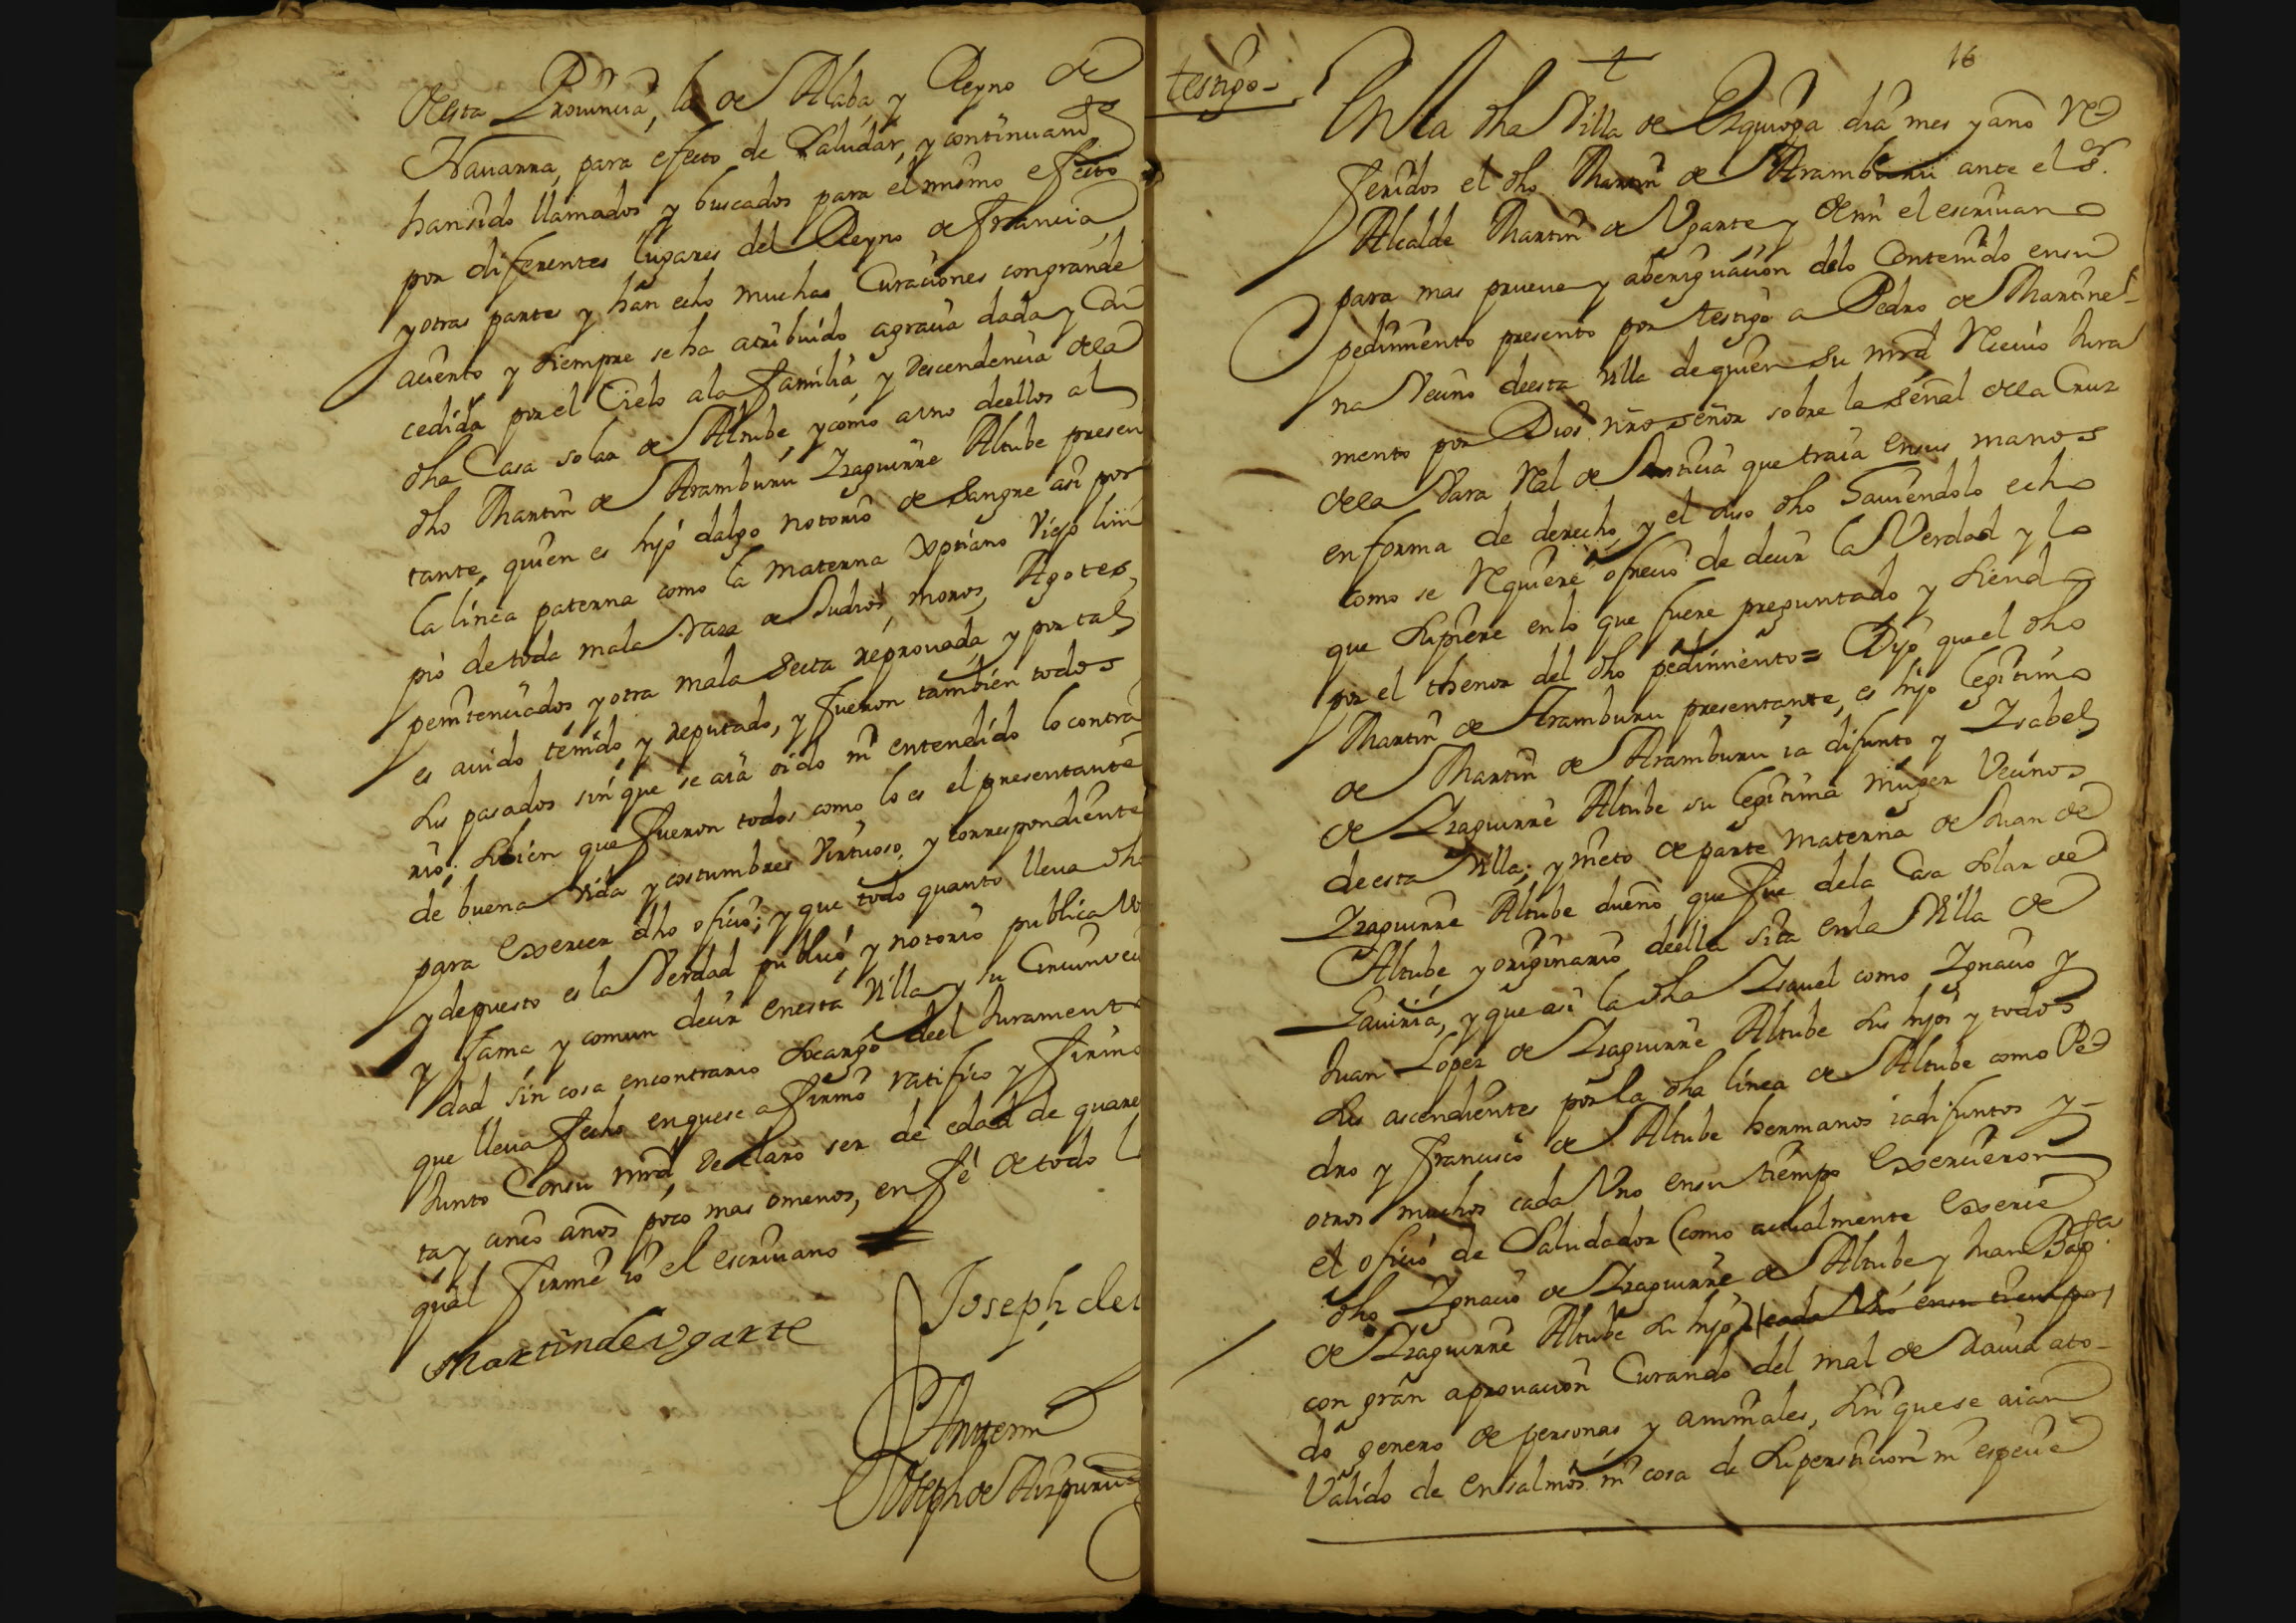 desta Prouincia, la de Alaba, y Reyno de
Nauarra, para efecto de Saludar, y continuamte
han sido llamados, y buscados para el mismo efecto
por diferentes lugares del Reyno de francia
y otras partes y han echo muchas Curaciones con grande
acierto y siempre se ha atribuido a gracia dada y Con
cedida por el Cielo a la familia y descendencia de la
dha Casa solar de Altube, y como a vno de ellos al
dho Martin de Aramburu Yzaguirre Altube presen
tante, quien es hijo dalgo notorio de sangre asi por
la linea paterna como la materna Xptiano Viejo lim
pio de toda mala raza de Judios, moros, Agotes,
penitenciados y otra mala secta reprouada, y por tal
es auido tenido, y reputado, y fueron tambien todos
sus pasados sin que se aia oido ni entendido lo contra
rio; si bien que fueron todos como lo es el presentante
de buena vida y costumbres Virtuoso, y correspondiente
para Exercer dho oficio; y que todo quanto lleua dho
y depuesto es la Verdad publico y notorio publica Vo
y fama y comun decir en esta Villa y su Circunveci
dad sin cosa en contrario so cargo de el Juramento
que lleua fecho en que se afirmo ratifico y firmo
Junto Con su mrd, declaro ser de edad de quaren
ta y cinco años poco mas o menos, en fé de todo lo
qual firme io el escriuano
Martin de Vgarte
Joseph de
Ante mi
Joseph de Aizpuru
16
testigo
En la dha Villa de Ezquioga dia mes y año Re
feridos el dho Martin de Aramburu ante el sr.
Alcalde Martin de Vgarte y de mi el escriuano
para mas prueue y aberiguacion de lo Contenido en su
pedimiento presento por testigo a Pedro de Martine
na Vecino de esta villa de quien su mrd Reciuio Jura
mento por Dios nro señor sobre la señal de la Cruz
de la Vara Real de Justicia que traia en sus manos
en forma de derecho, y el suso dho hauiendolo echo
como se Requiere ofrecio de decir la Verdad y lo
que supiere en lo que fuere preguntado y siendo
por el thenor del dho pedimiento = Dijo que el dho
Martin de Aramburu presentante, es hijo legitimo
de Martin de Aramburu ia difunto y Ysabel
de Yzaguirre Altube su legitima muger Vecinos
de esta Villa; y nieto de parte materna de Juan de
Yzaguirre Altube dueño que fue de la Casa solar de
Altube y originario de ella sita en la Villa de
Gauiria, y que asi la dha Ysauel como Ygnacio y
Juan Lopez de Yzaguirre Altube sus hijos y todos
sus ascendientes por la dha linea de Altube como Pe
dro y francisco de Altube hermanos ia difuntos y
otros muchos cada Vno en su tiempo Exercieron
el oficio de Saludador (como actualmente Exerce
dho Ygnacio de Yzaguirre de Altube y Juan Bapta
de Yzaguirre Altube su hijo) (cada Vno en su tiempo)
con gran aprouacion Curando del mal de rauia a to
do genero de personas y animales, sin que se aian
Valido de ensalmos ni cosa de supersticion ni especie